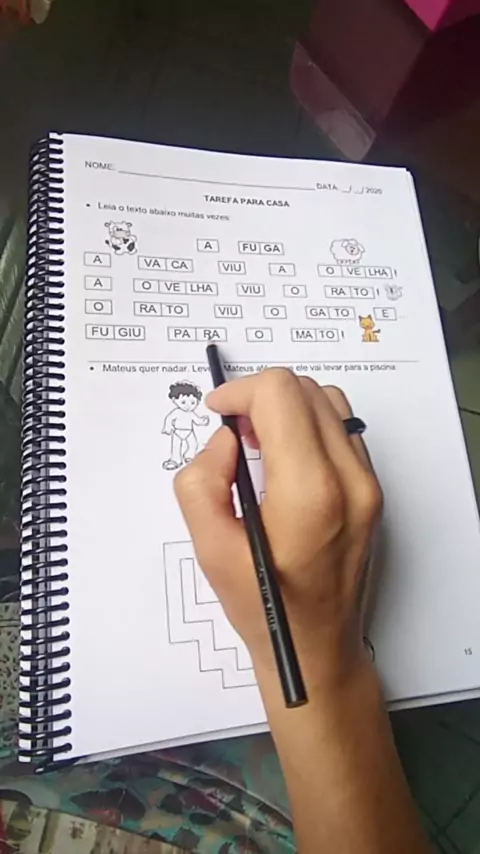 NOME: ____ DATA: __/__/2020
TAREFA PARA CASA
• Leia o texto abaixo muitas vezes:
A FU GA
A VA CA VIU A O VE LHA !
A O VE LHA VIU O RA TO !
O RA TO VIU O GA TO E
FU GIU PA RA O MA TO !
• Mateus quer nadar. Mateus ele vai levar para a piscina
15